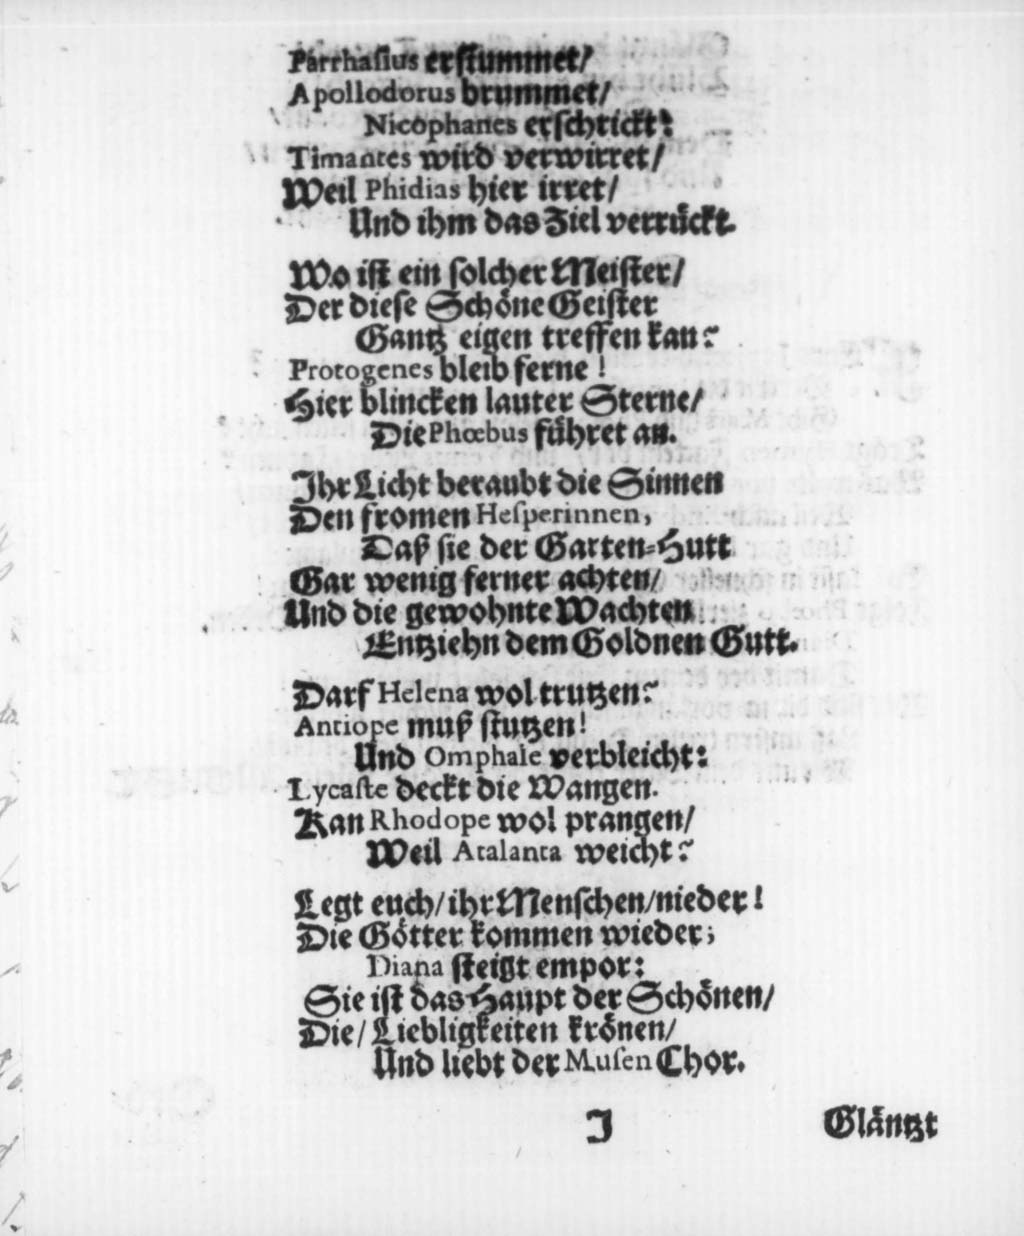 Parrhasius erstummet/
Apollodorus brummet/
Nicophanes erschrickt:
Timantes wird verwirret/
Weil Phidias hier irret/
Und ihm das Ziel verrückt.
Wo ist ein solcher Meister/
Der diese Schöne Geister
Gantz eigen treffen kan?
Protogenes bleib ferne!
Hier blincken lauter Sterne/
Die Phœbus führet an.
Ihr Licht beraubt die Sinnen
Den fromen Hesperinnen,
Daß sie der Garten-Hutt
Gar wenig ferner achten/
Und die gewohnte Wachten
Entziehn dem Goldnen Gutt.
Darf Helena wol trutzen?
Antiope muß stutzen!
Und Omphale verbleicht:
Lycaste deckt die Wangen.
Kan Rhodope wol prangen/
Weil Atalanta weicht?
Legt euch/ ihr Menschen/ nieder!
Die Götter kommen wieder;
Diana steigt empor:
Sie ist das Haupt der Schönen/
Die/ Liebligkeiten krönen/
Und liebt der Musen Chor.
J Gläntzt